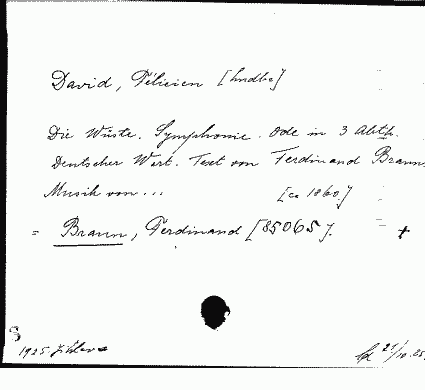 David, Félicien [hndbe]
Die Wüste. Symphonie. Ode in 3 Abth.
Deutscher Wort. Text von Ferdinand Braun
Musik von ... [ca 1860]
= Braun, Ferdinand [85065]. +
1925
21/10.25.